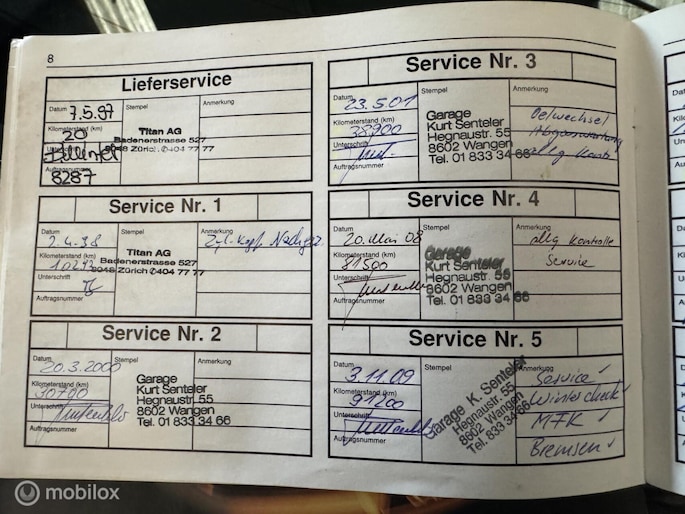 8
Lieferservice
Datum 7.5.97
Stempel
Anmerkung
Kilometerstand (km) 20
Titan AG
Badenerstrasse 527
8048 Zürich ✆404 77 77
Unterschrift
Auftragsnummer
8287
Service Nr. 1
Datum 2.4.98
Stempel
Anmerkung
Kilometerstand (km)
Titan AG
Badenerstrasse 527
8048 Zürich ✆404 77 77
Unterschrift
Auftragsnummer
Service Nr. 2
Datum 20.3.2000
Stempel
Anmerkung
Kilometerstand (km) 30700
Garage
Kurt Senteler
Hegnaustr. 55
8602 Wangen
Tel. 01 833 34 66
Unterschrift
Auftragsnummer
Service Nr. 3
Datum 23.5.01
Stempel
Anmerkung
Kilometerstand (km) 38900
Garage
Kurt Senteler
Hegnaustr. 55
8602 Wangen
Tel. 01 833 34 66
Oelwechsel
Unterschrift
Auftragsnummer
Service Nr. 4
Datum 20. Mai 08
Stempel
Anmerkung
Kilometerstand (km) 81500
Garage
Kurt Senteler
Hegnaustr. 55
8602 Wangen
Tel. 01 833 34 66
allg Kontrolle
Service
Unterschrift
Auftragsnummer
Service Nr. 5
Datum 3.11.09
Stempel
Anmerkung
Kilometerstand (km) 91200
Garage K. Senteler
Hegnaustr. 55
8602 Wangen
Tel. 833 34 66
Service ✓
Wintercheck ✓
MFK ✓
Bremsen ✓
Unterschrift
Auftragsnummer
mobilox